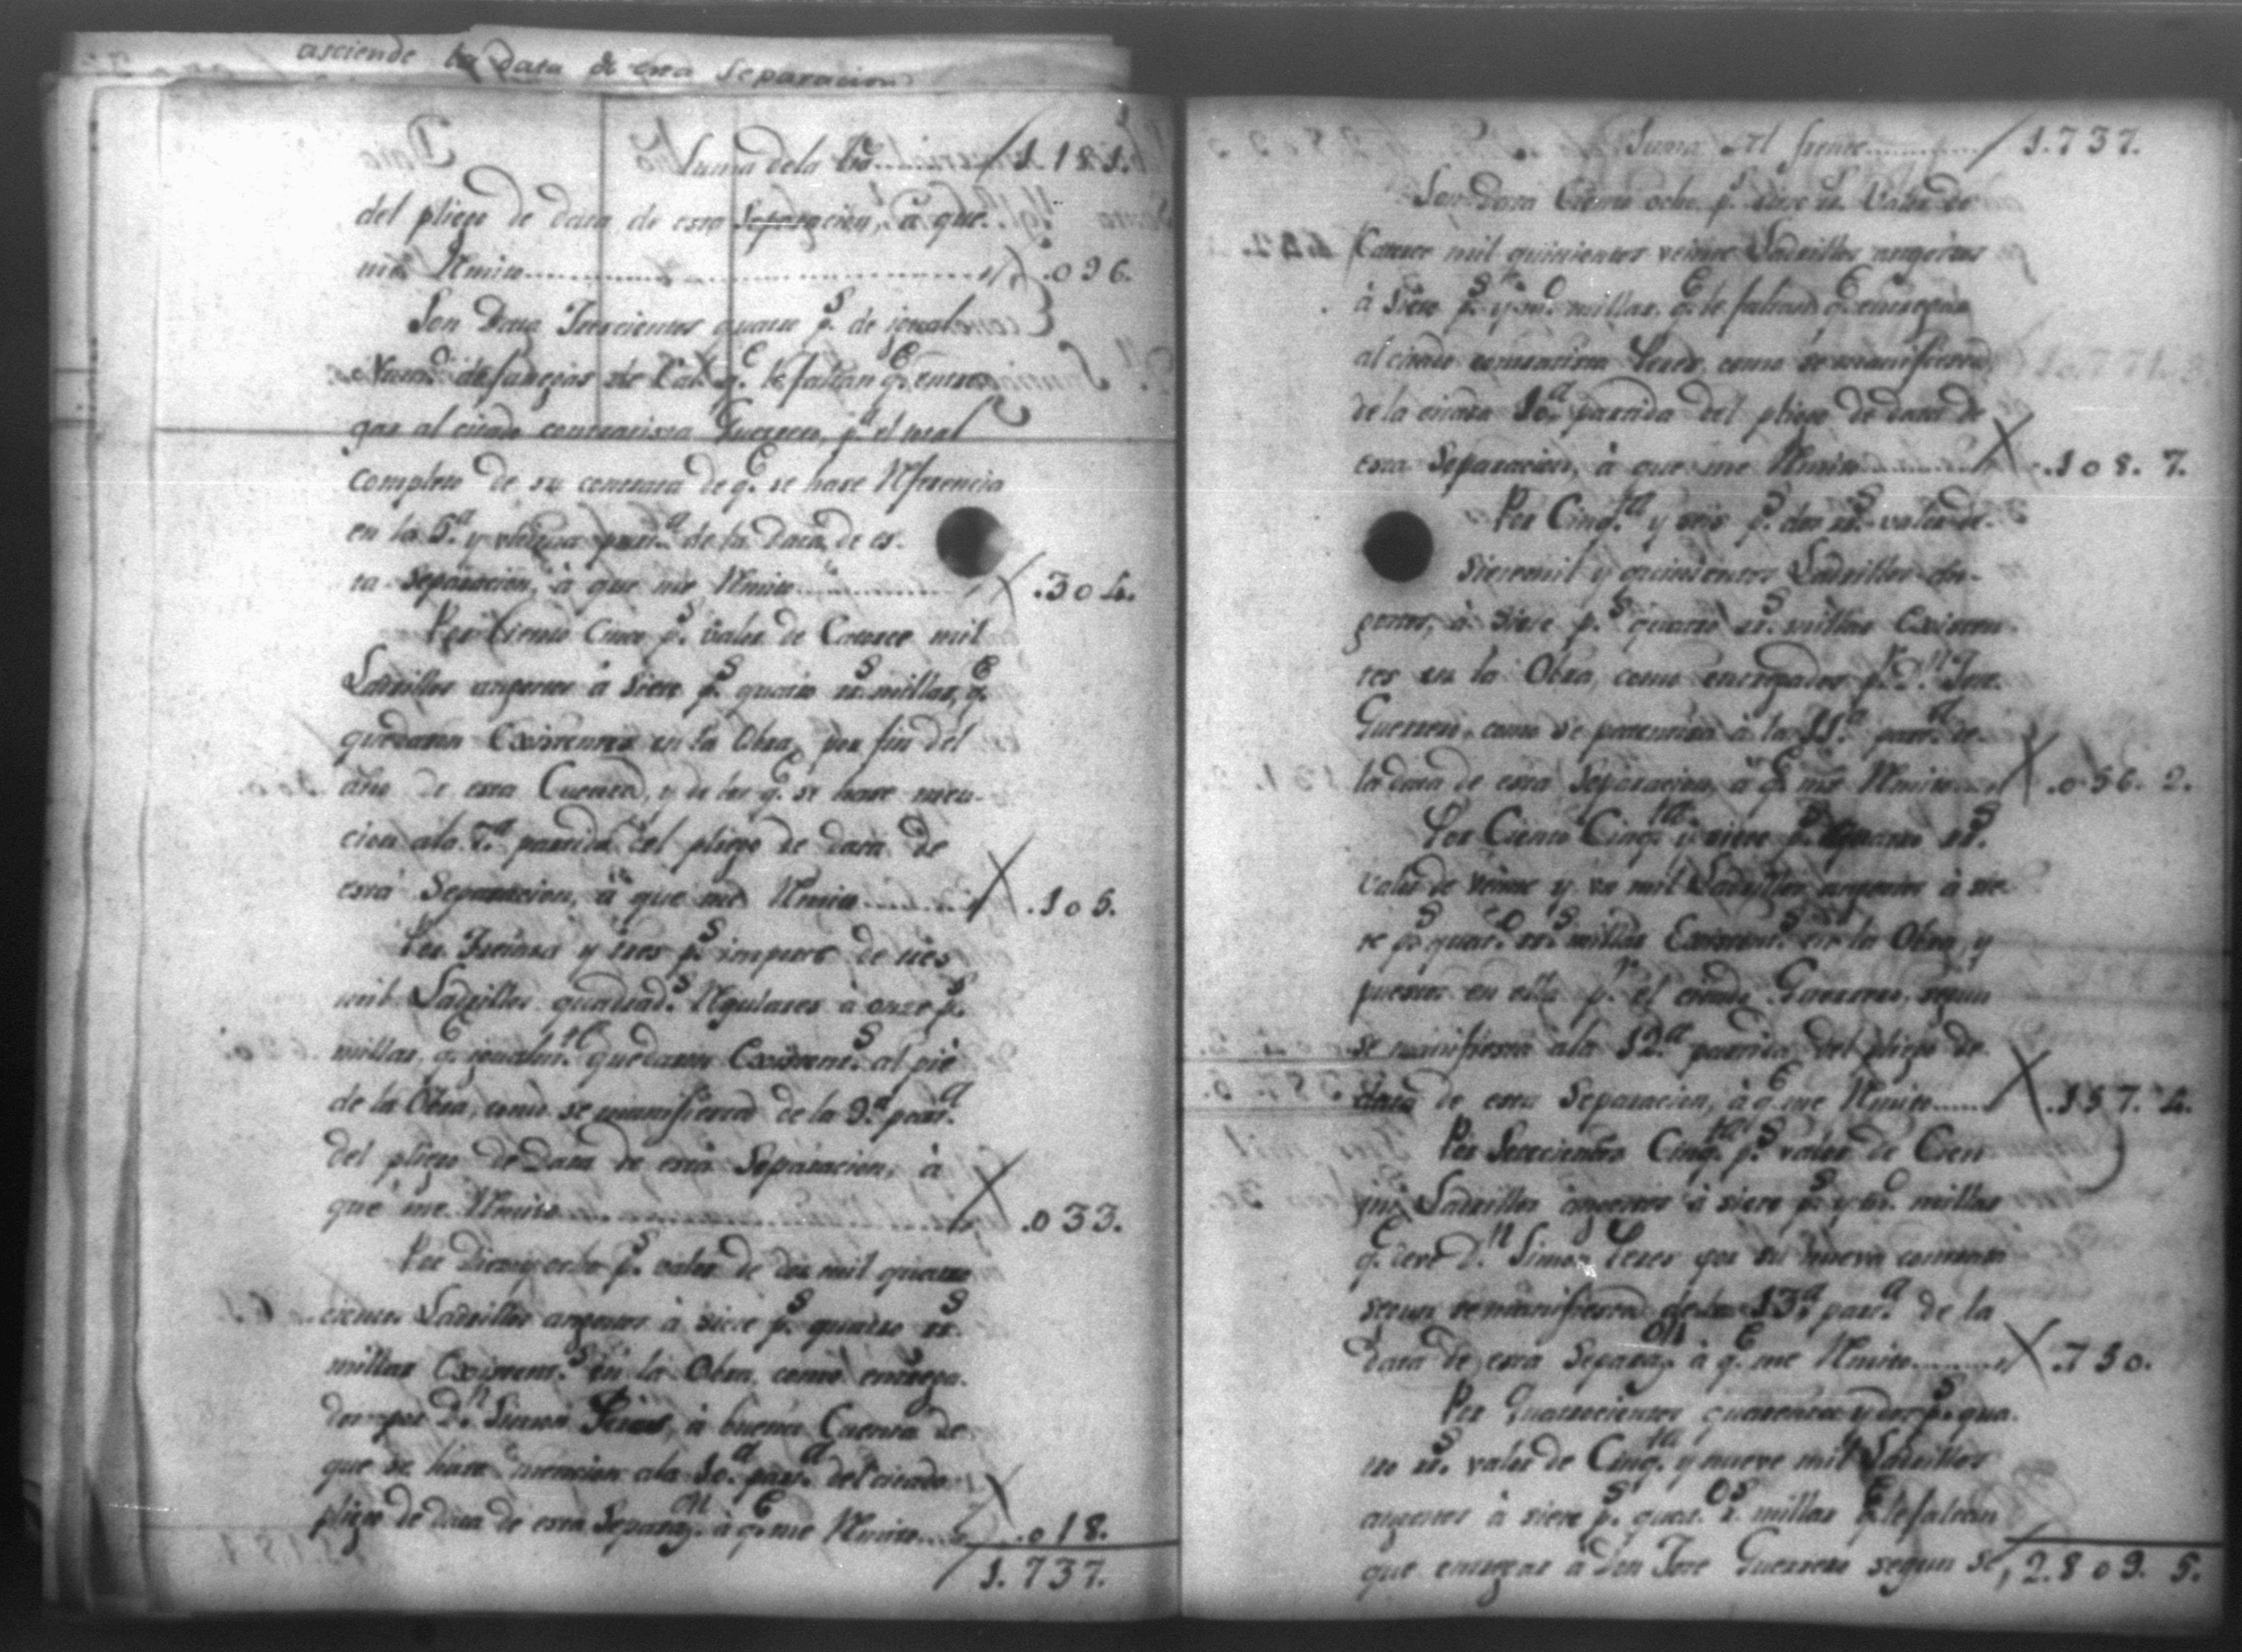 asciende la data de esta separacion
Suma de la Bta......... 1.181.
del pliego de data de esta Separacion, à que.
me Rmito.............................. .096.
Son Data Trescientos quatro p.s de igual
Num.o de fanegas de Cal q.e le faltan q.e entre
gar al citado contratista Guerrero, p.a el total
completo de su contrata de q.e se hase Rferencia
en la 5.a y part.a de la Data de es-
ta Separacion, à que me Rmito............ .304.
Por Ciento Cinco p.s valor de Catorce mil
Ladrillos angostos à siete p.s quatro rr.s millar, q.e
quedaron Existentes en la Obra, por fin del
año de esta Cuenta, y de los q.e se hase men-
cion ala 7.a partida del pliego de data de
esta Separacion, à que me Rmito......... .105.
Por Treinta y tres p.s importe de tres
mil Ladrillos quadrad.s Rgulares à onze p.s
millar, q.e igualm.te quedaron Existent.s al pie
de la Obra, como se manifiesta de la 9.a part.a
del pliego de Data de esta Separacion, à
que me Rmito......................... .033.
Por Diez y ocho p.s valor de dos mil quatro
cientos Ladrillos angostos à siete p.s quatro rr.s
millar Existent.s en la Obra, como entrega-
dos por D.n Simon Peres, à buena Cuenta de
que se hase mencion ala 10.a part.a del citado
pliego de data de esta Separaz.on à q.e me Rmito.... .018.
1.737.
Suma del frente............ 1.737.
Son Data Ciento ocho p.s siete rr.s Valor de
Catorce mil quinientos veinte Ladrillos angostos
à siete p.s y m.o millar, q.e le faltan q.e entregar
al citado contratista Peres, como se manifiesta
de la citada 10.a partida del pliego de data de
esta Separacion, à que me Rmito.......... .108. 7.
Por Cinq.ta y seis p.s dos rr.s valor de
Siete mil y quinientos Ladrillos an-
gostos, à siete p.s quatro rr.s millar Existen-
tes en la Obra, como entregados p.r D.n Jose
Guerrero, como se patentiza à la 11.a part.a de
la data de esta Separacion, à q.e me Rmito.... .056. 2.
Por Ciento Cinq.ta y siete p.s quatro rr.s
valor de veinte y un mil Ladrillos angostos à sie-
te p.s quat.o rr.s millar Existent.s en la Obra, y
puestos en ella p.r el citado Guerrero, segun
se manifiesta ala 12.a partida del pliego de
data de esta Separacion, à q.e me Rmito...... .157. 4.
Por Setecientos Cinq.ta p.s valor de Cien
mil Ladrillos angostos à siete p.s y m.o millar
q.e deve D.n Simon Peres por su nueva contrata
segun se manifiesta de la 13.a part.a de la
data de esta Separaz.on à q.e me Rmito......... .750.
Por Quatrocientos quarenta y dos p.s qua-
tro rr.s valor de Cinq.ta y nueve mil Ladrillos
angostos à siete p.s quat.o r.s millar q.e le faltan
que entregar à Don Jose Guerrero segun se 2.809. 5.